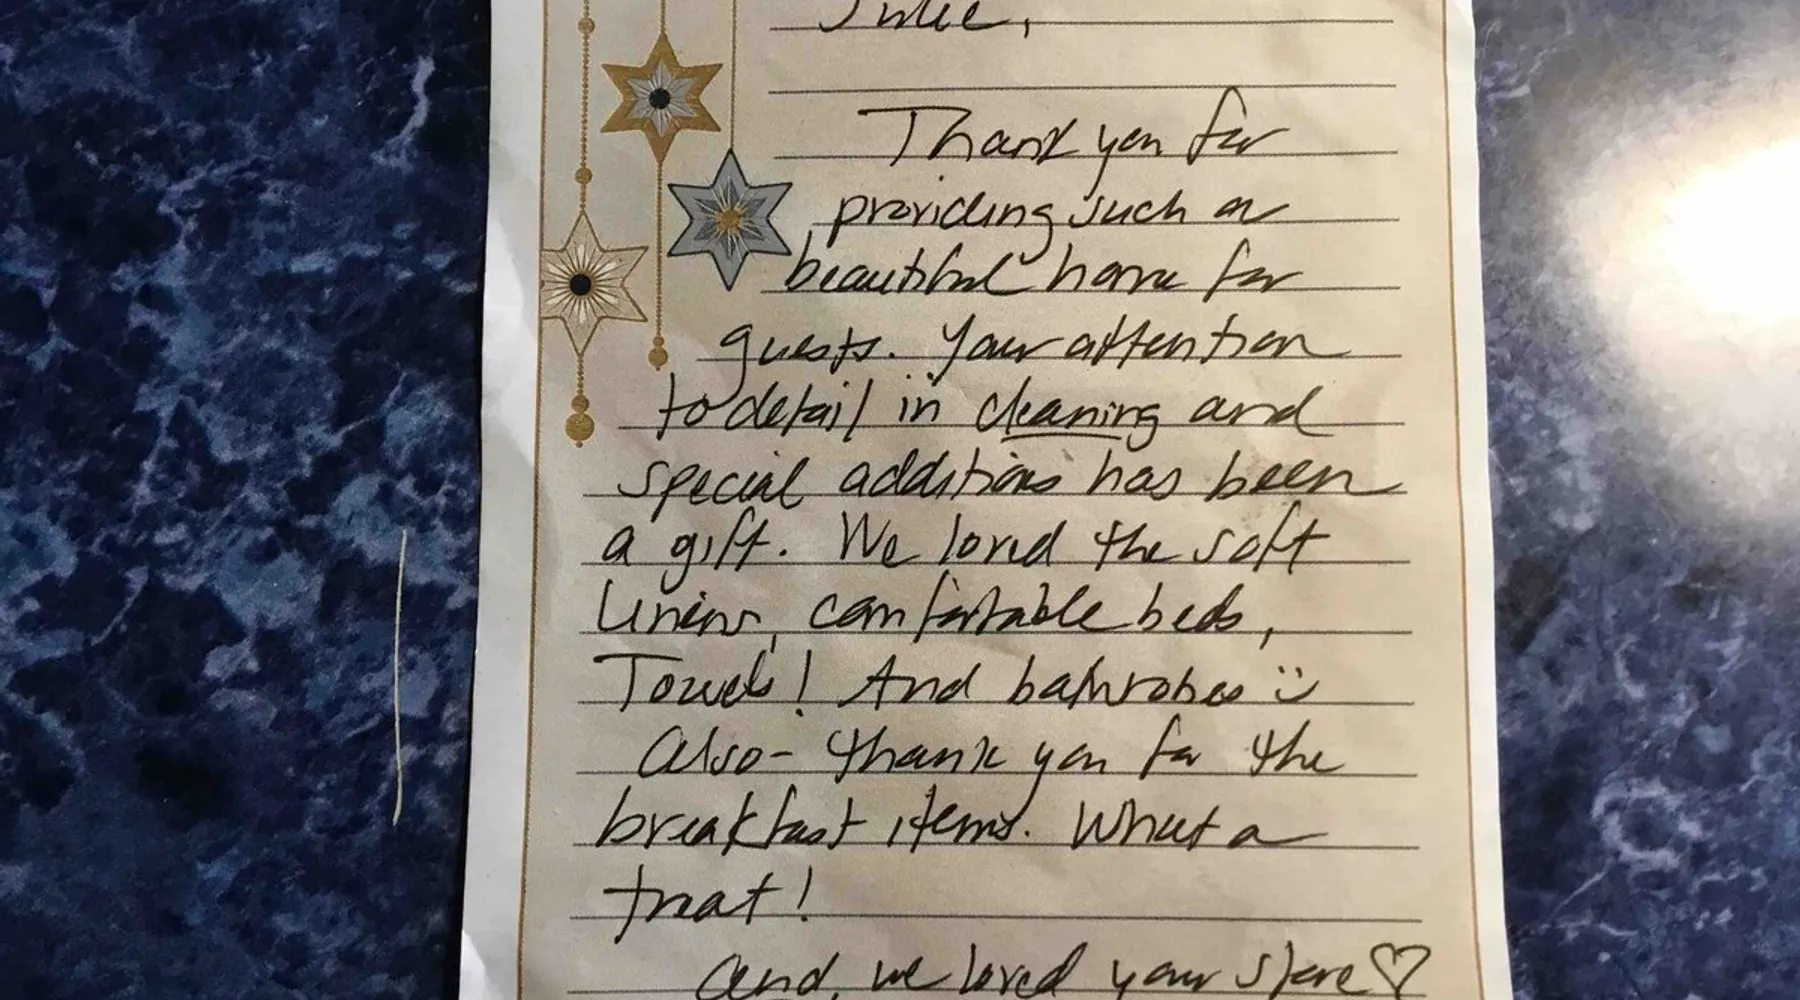 Julie,
Thank you for
providing such a
beautiful home for
guests. Your attention
to detail in cleaning and
special additions has been
a gift. We loved the soft
linens, comfortable beds,
Towels! And bathrobes :)
Also - thank you for the
breakfast items. What a
treat!
And, we loved your store ♡